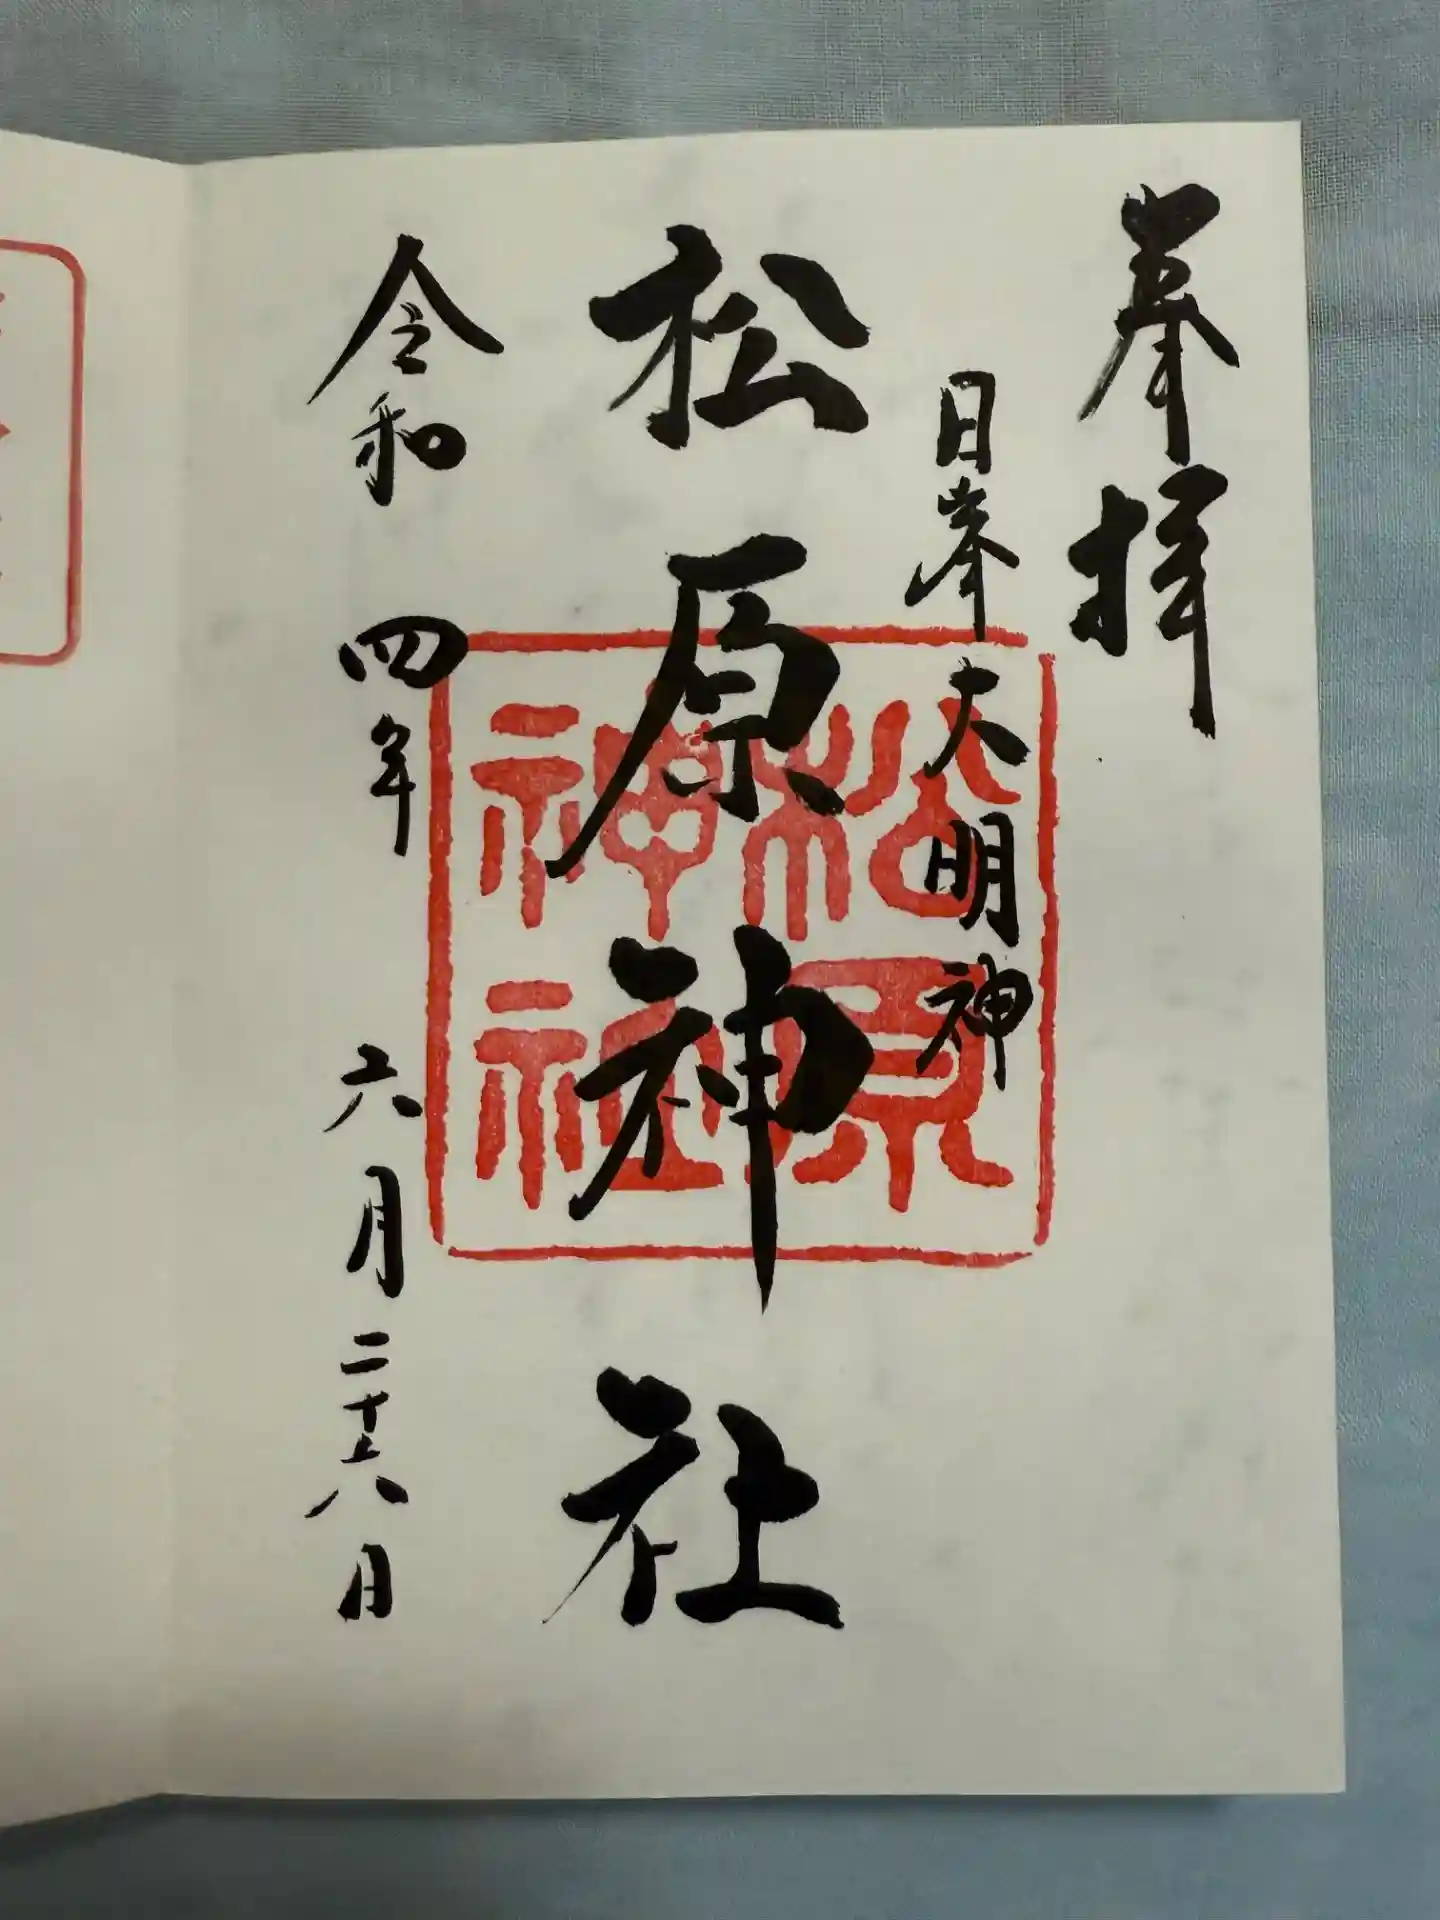 奉拝
日峯大明神
松原神社
松原神社
令和四年六月二十八日